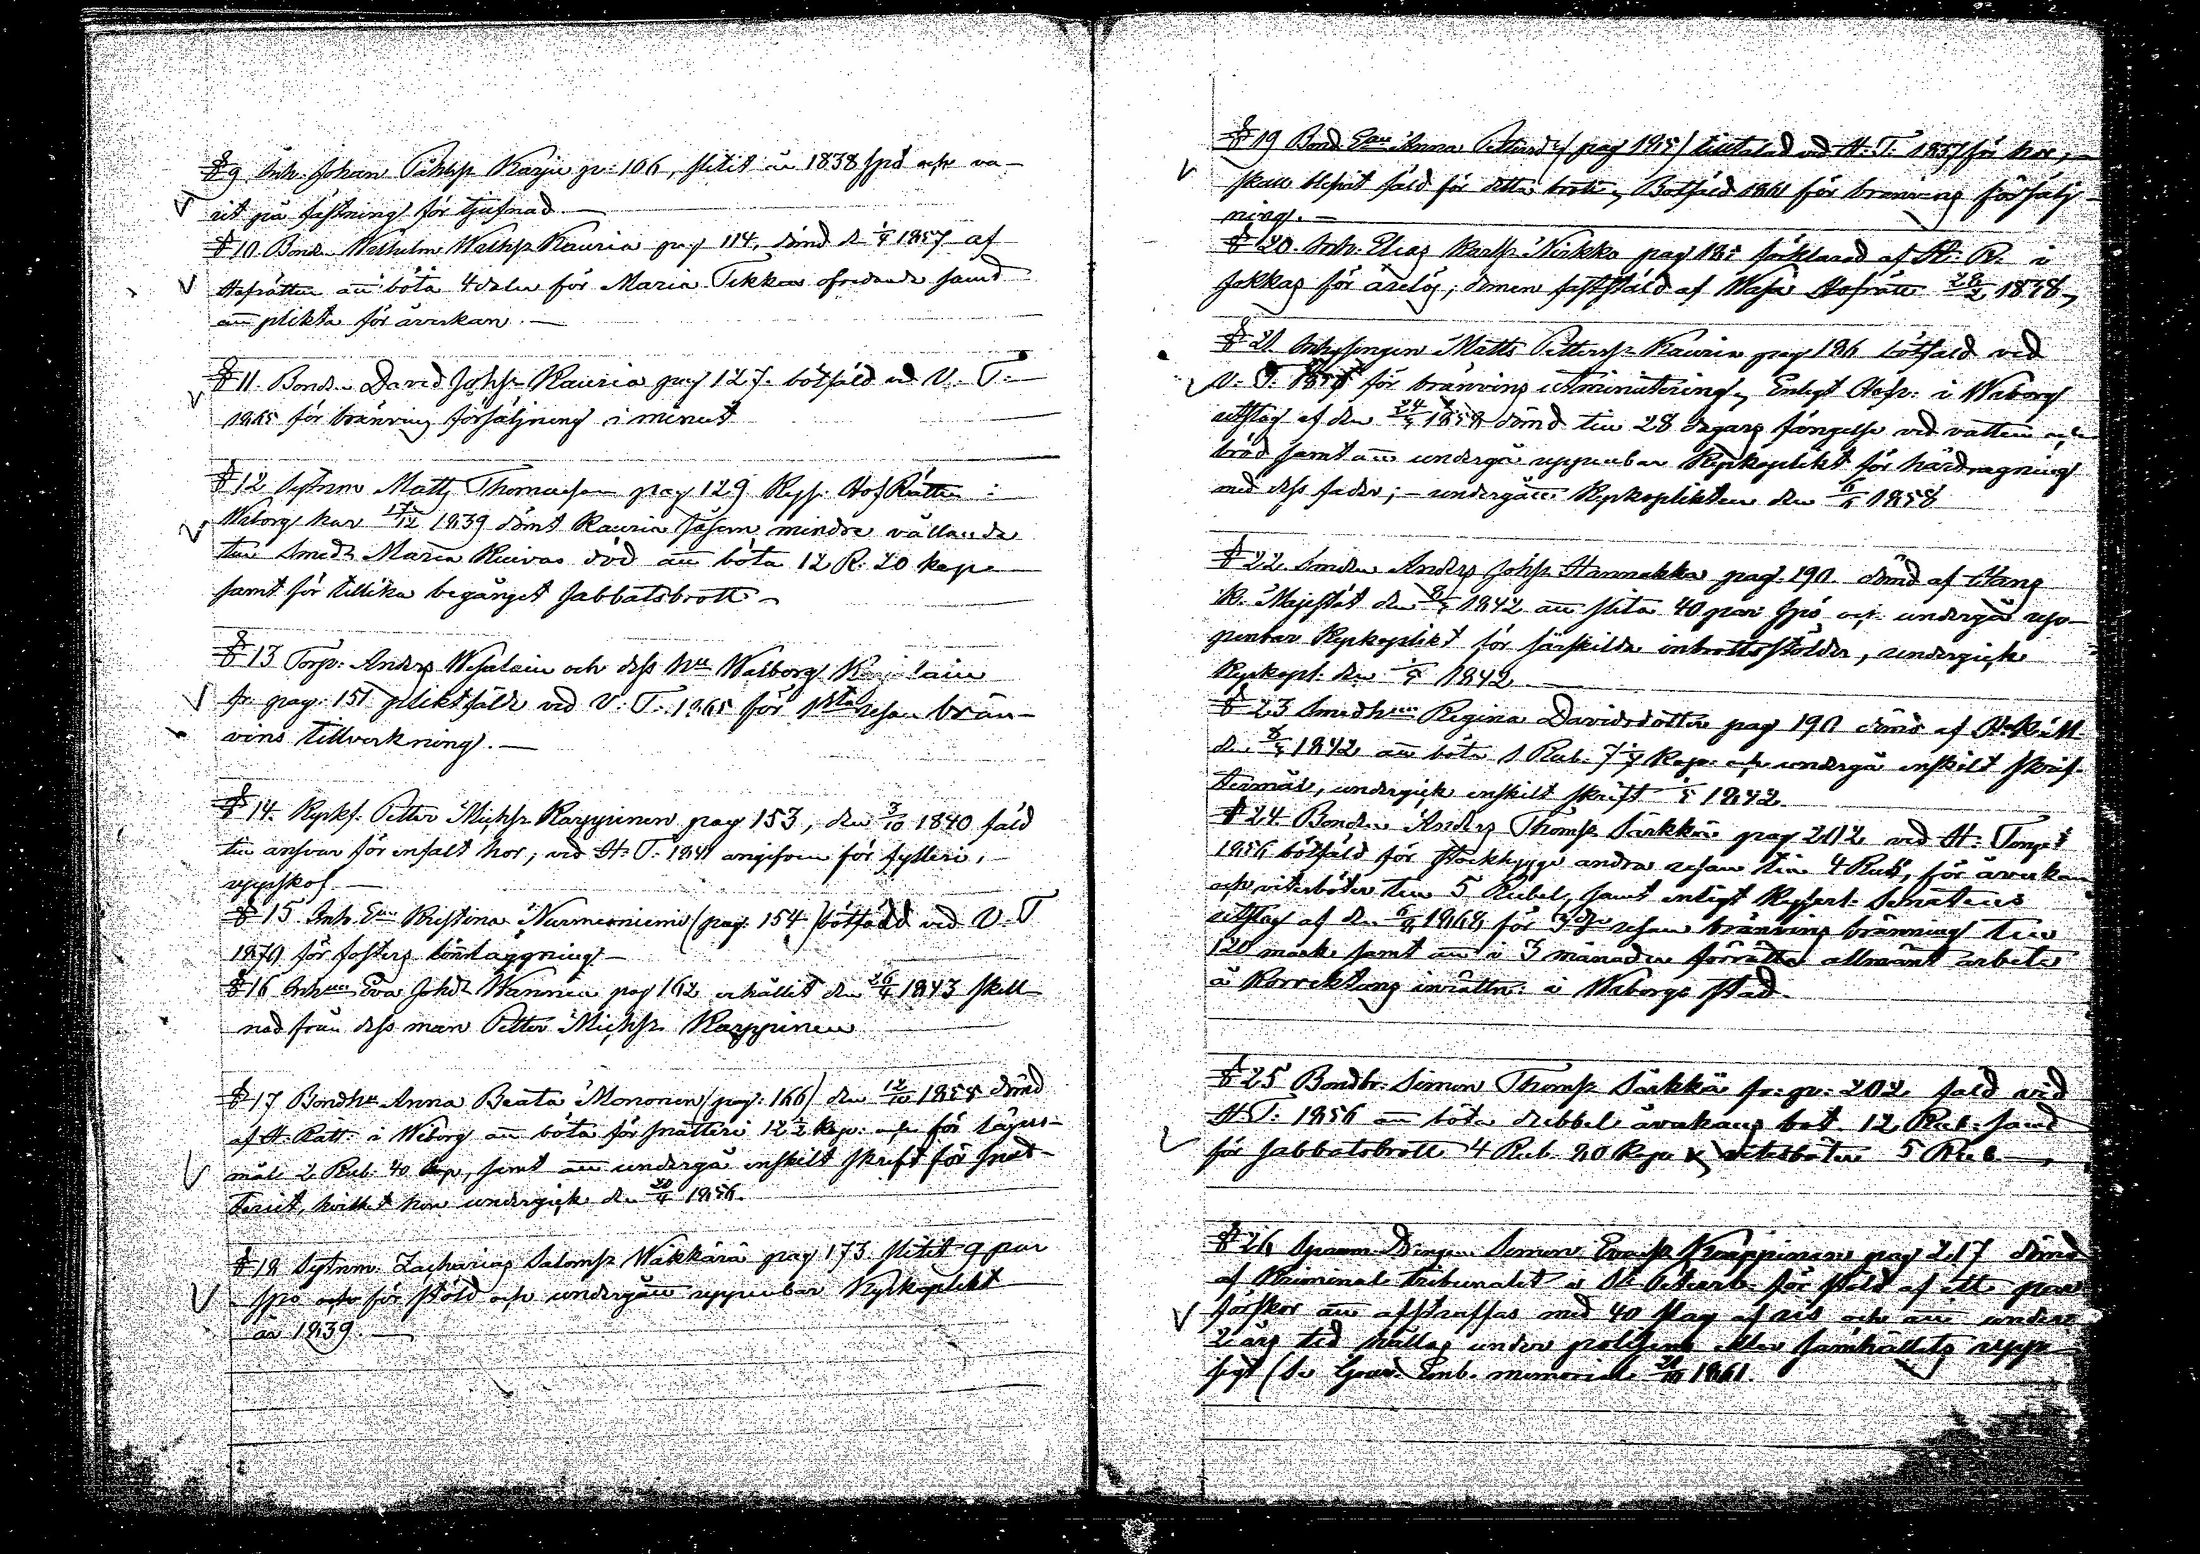 § 9. Inh. Johan Påhlss: Karju p: 106, slitit år 1838 spö och va-
rit på fästning för tjufnad. —
§ 10 Bond. Wilhelm Wilhss Kauria pag 114, dömd d. 1/9 1857 af
Hofrätten att böta 4 daler för Maria Tekkos ofredande samt
att plikta för åverkan. —
§ 11. Bonden David Johss Kauria pag 127. bötfäld vid V. T.
1865 för bränvins försäljning i minut
§ 12 Sytnm Matts Thomasson pag 129 Kejs. Hof Rätten i
Wiborg har 17/12 1839 dömt Kauria såsom mindre vållande
till Smeds Maria Kuivas död att böta 12 R. 20 kop
samt för tillika begånget sabbatsbrott —
§ 13 Torp: Anders Wesalain och dess hu Walborg
fr pag: 151 pliktfälde vid V. T. 1865 för 1sta resan brän-
vins tillverkning. —
§ 14. Kyrks. Petter Michss Karppinen pag 153, den 3/10 1840 fäld
till ansvar för enfalt hor, vid H. T. 1841 angifven för fylleri,
uppskof —
§ 15 Inh. Enk Kristina Nurmeniemi (pag. 154) bötfäld vid V. T
1870 för fosters lönläggning —
§ 16 Inhu Eva Johds Wannen pag 162 erhållit den 26/4 1843 skill-
nad från dess man Petter Michss Karppinen
§ 17 Bondhu Anna Beata Mononen (pag: 166) den 12/10 1855 dömd
af H. Rätt: i Wiborg att böta för snatteri 12 1/2 kop: och för lägers-
mål 2 Rub. 40 kop, samt att undergå enskilt skrift för snat-
teriet, hvilket hon undergick d. 20/4 1856.
§ 18 Sytnm. Zacharias Salomss Wäkkärä pag 173 slitit 9 par
spö för stöld och undergått uppenbar Kyrkoplikt
år 1839. —
§ 19 Bond Enk Anna Pettersd: (pag 185) tilltalad vid H. T. 1857 för hor, —
skall blifvit fäld för detta brott, Botfäld 1861 för bränvins försälj-
ning. —
§ 20. Inh. Elias Karlss Nirkko pag 185 förklarad af H. R. i
Jokkas för ärelös, domen fastställd af Wasa Hofrätt 28/2 1838,
§ 21 Inhysingen Matts Petterss Kauria pag 186 bötfäld vid
V. T. för bränvins utminutering, Enligt Hofr: i Wiborg
utslag af den 24/3 1858 dömd till 28 dagars fängelse vid vatten och
bröd samt att undergå uppenbar Kyrkoplikt för hårdragning
med dess fader; — undergått Kyrkoplikten den 1858
§ 22 Smeden Anders Johss Hannukka pag. 190 dömd af Hans
K. Majestät den 1842 att slita 40 par spö och undergå up-
penbar Kyrkoplikt för särskilda inbrottsstölder, undergick
Kyrkopl. den 1842 —
§ 23 Smedhu Regina Davidsdotter pag 190 dömd af H. Rätt
d. 1842 att böta 1 Rub. 7 1/7 kop. och undergå enskilt skrif-
termål, undergick enskilt skrift 1842.
§ 24 Bonden Anders Thomss Särkkä pag 202 vid H. Tinget
1856 bötfäld för stockhygge andra resan till 4 Rub, för åverkan
och vitesböter till 5 Rubel, samt enligt Kejserl. Senatens
utslag af den 1868 för 3dje resan bränvins bränning till
120 mark samt att i 3 månader förrätta allmänt arbete
å Korrektions inrättn: i Wiborgs stad.
§ 25 Bondbr: Simon Thomss Särkkä fr. p: 202 fäld vid
H. T. 1856 att böta dubbel åverkans bot 12 Rub. samt
för sabbatsbrott 4 Rub. 80 kop vitesböter 5 Rub —
§ 26 Simon Karppinen pag 217 dömd
af Kriminal tribunalet i St Petersb. för stöld af ett par
förskor att afstraffas med 40 slag af ris och att under
2 års tid hållas under polisens eller samhällets upp-
sigt (Se Guv. Emb. memorial 1861.